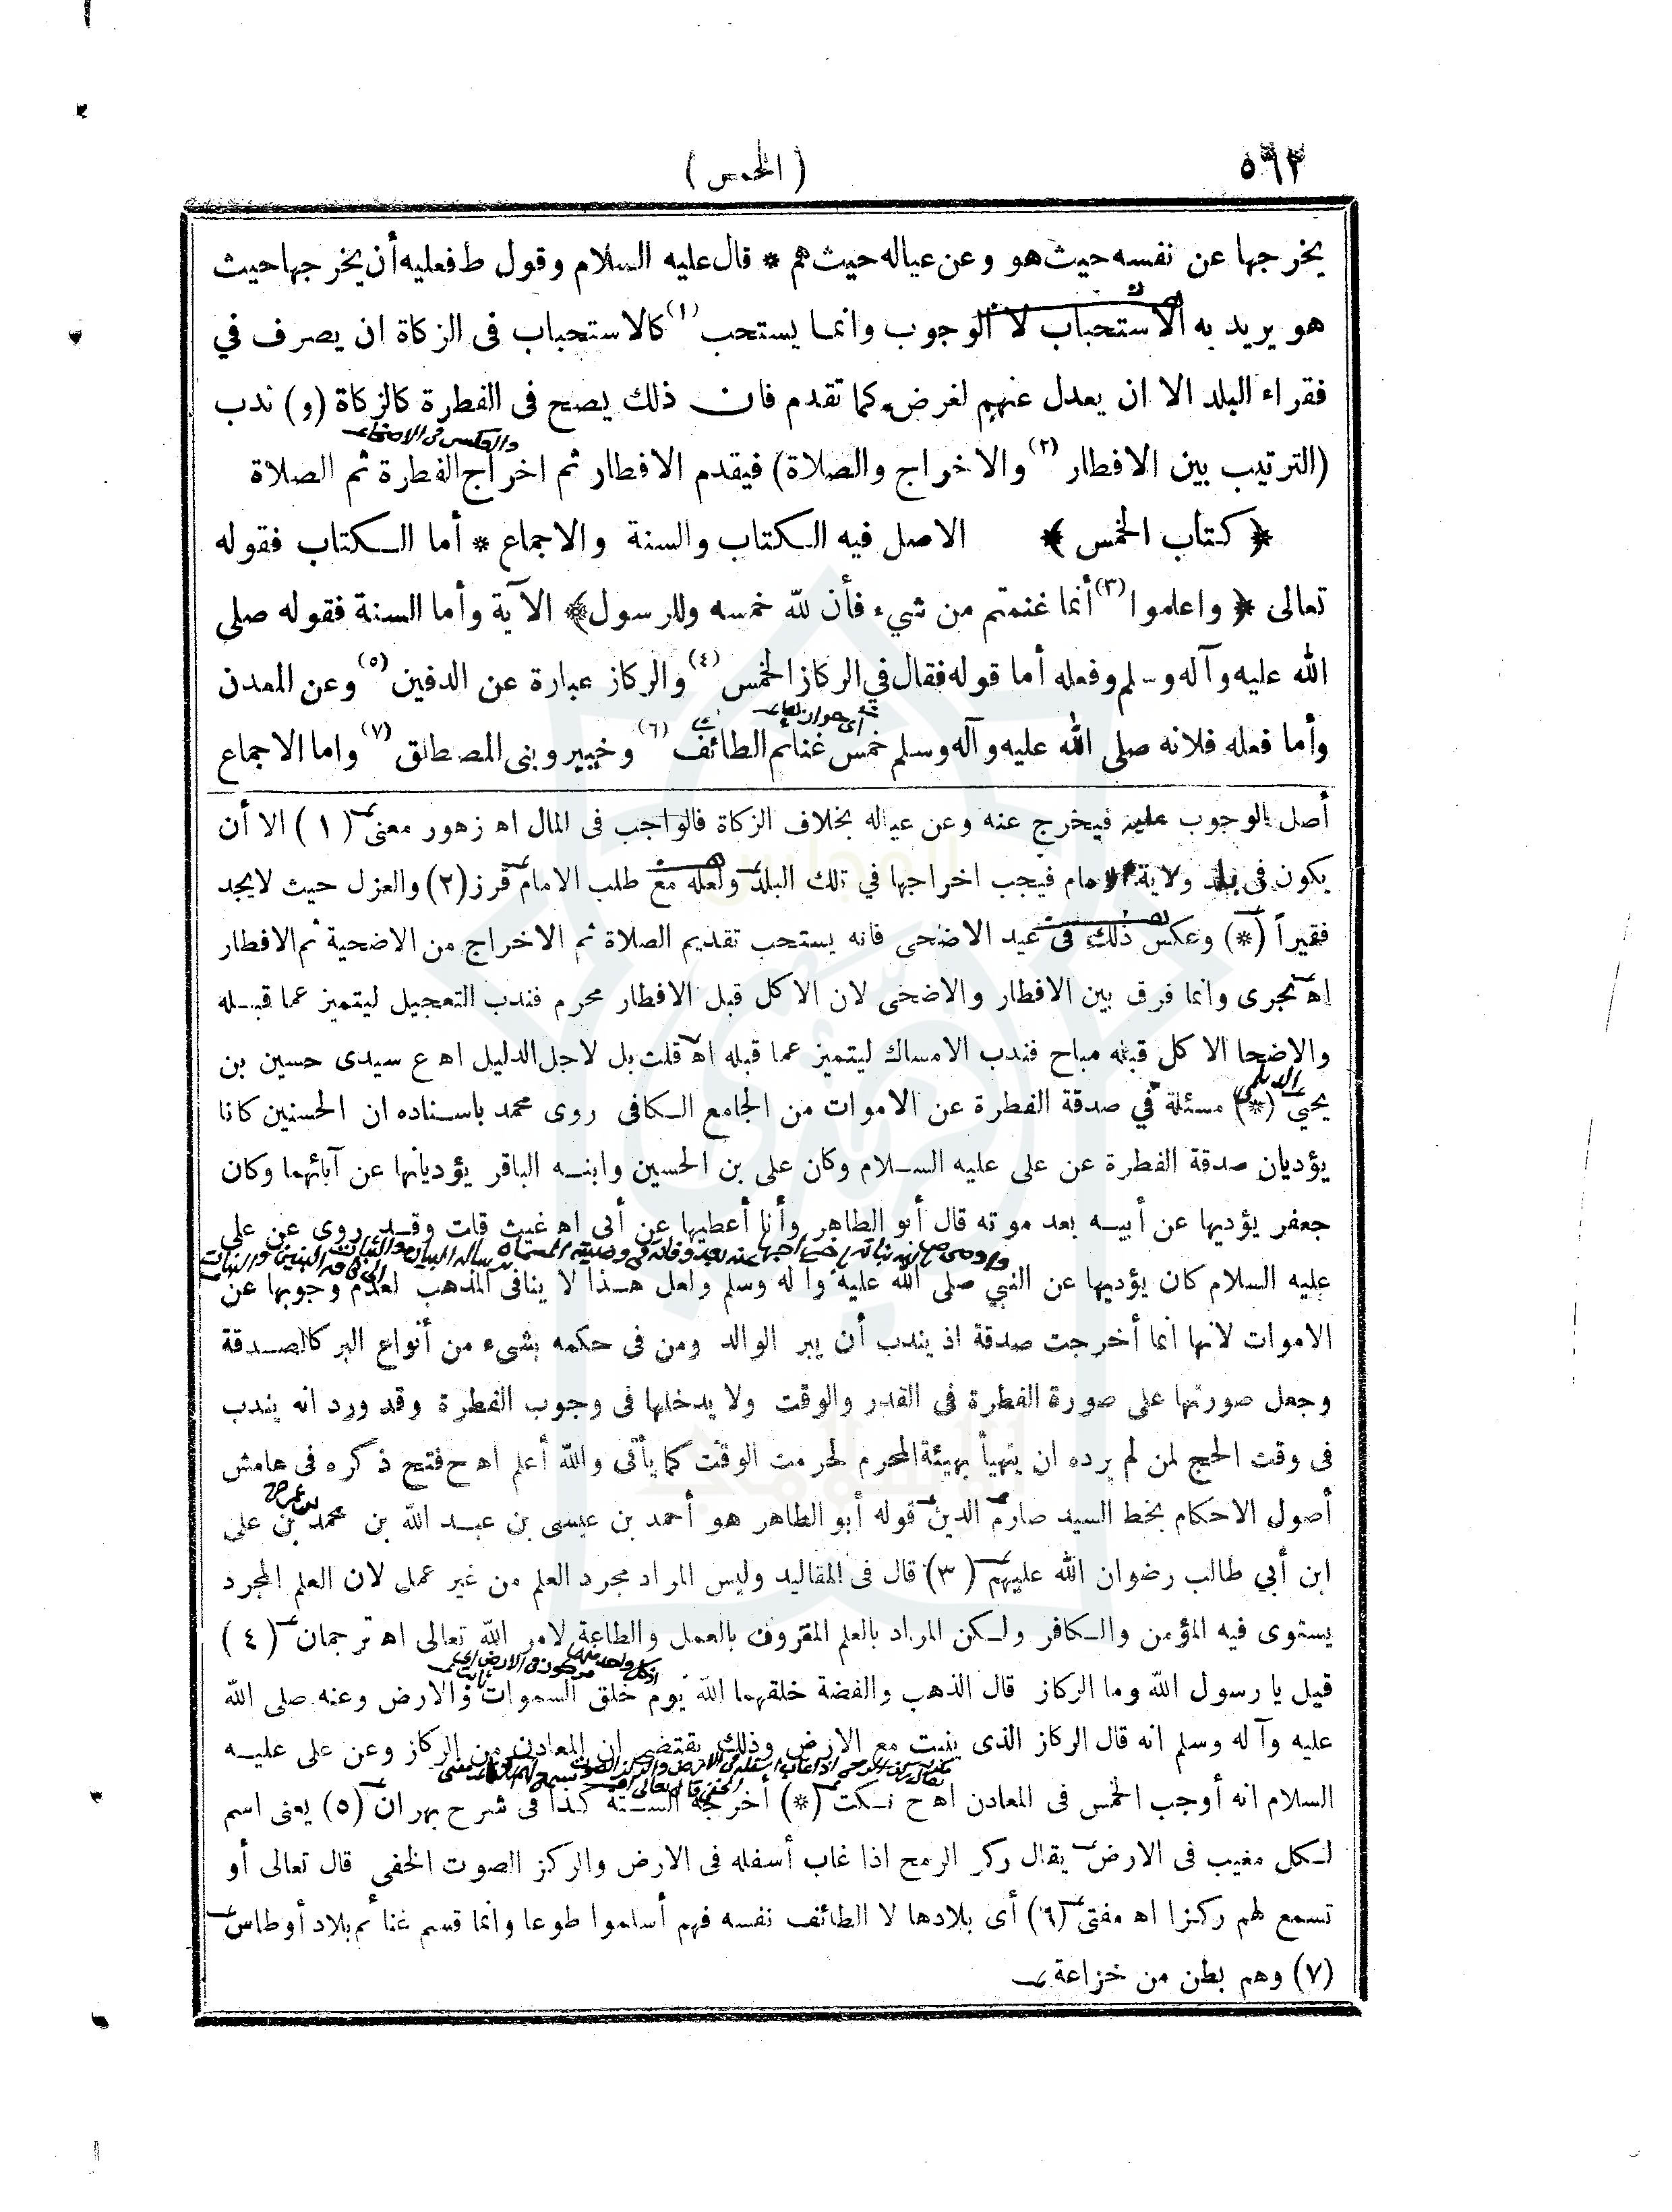 ٥٩٣
(الخمس)
يخرجها عن نفسه حيث هو وعن عياله حيث هم * قال عليه السلام وقول ط فعليه أن يخرجها حيث
هو يريد به الاستحباب لا الوجوب وانما يستحب (١) كالاستحباب فى الزكاة ان يصرف في
فقراء البلد الا ان يعدل عنهم لغرض كما تقدم فان ذلك يصح فى الفطرة كالزكاة (و) ندب
والعكس فى الاضحى
(الترتيب بين الافطار (٢) والاخراج والصلاة) فيقدم الافطار ثم اخراج الفطرة ثم الصلاة
﴿ كتاب الخمس ﴾ الاصل فيه الكتاب والسنة والاجماع * أما الكتاب فقوله
تعالى ﴿ واعلموا (٣) أنما غنمتم من شيء فأن لله خمسه وللرسول﴾ الآية وأما السنة فقوله صلى
الله عليه وآله وسلم وفعله أما قوله فقال في الركاز الخمس (٤) والركاز عبارة عن الدفين (٥) وعن المعدن
وأما فعله فلانه صلى الله عليه وآله وسلم خمس غنائم الطائف (٦) وخيبر وبنى المصطلق (٧) واما الاجماع
أصل الوجوب عليه فيخرج عنه وعن عياله بخلاف الزكاة فالواجب فى المال اه زهور معنى (١) الا أن
يكون فى بلد ولاية الامام فيجب اخراجها في تلك البلد ولعله مع طلب الامام قرز (٢) والعزل حيث لا يجد
فقيراً (*) وعكس ذلك فى عيد الاضحى فانه يستحب تقديم الصلاة ثم الاخراج من الاضحية ثم الافطار
اه نجرى وانما فرق بين الافطار والاضحى لان الاكل قبل الافطار محرم فندب التعجيل ليتميز عما قبله
والاضحا الاكل قبله مباح فندب الامساك ليتميز عما قبله اه قلت بل لاجل الدليل اه ع سيدى حسين بن
يحيى الديلمى (*) مسئلة في صدقة الفطرة عن الاموات من الجامع الكافى روى محمد باسناده ان الحسنين كانا
يؤديان صدقة الفطرة عن على عليه السلام وكان على بن الحسين وابنه الباقر يؤديانها عن آبائهما وكان
جعفر يؤديها عن أبيه بعد موته قال أبو الطاهر وأنا أعطيها عن أبى اه غيث قلت وقد روى عن على
عليه السلام كان يؤديها عن النبي صلى الله عليه وآله وسلم ولعل هذا لا ينافى المذهب لعدم وجوبها عن
الاموات لانها انما أخرجت صدقة اذ يندب أن يبر الوالد ومن فى حكمه بشىء من أنواع البر كالصدقة
وجعل صورتها على صورة الفطرة فى القدر والوقت ولا يدخلها فى وجوب الفطرة وقد ورد انه يندب
فى وقت الحج لمن لم يرده ان يتهيأ بهيئة المحرم لحرمت الوقت كما يأتى والله أعلم اه ح فتح ذكره فى هامش
أصول الاحكام بخط السيد صارم الدين قوله أبو الطاهر هو أحمد بن عيسى بن عبد الله بن محمد بن عمر بن على
ابن أبي طالب رضوان الله عليهم (٣) قال فى المقاليد وليس المراد مجرد العلم من غير عمل لان العلم المجرد
يستوى فيه المؤمن والكافر ولكن المراد بالعلم المقرون بالعمل والطاعة لامر الله تعالى اه ترجمان (٤)
قيل يا رسول الله وما الركاز قال الذهب والفضة خلقهما الله يوم خلق السموات والارض وعنه صلى الله
عليه وآله وسلم انه قال الركاز الذى ينبت مع الارض وذلك يقتضى ان المعادن من الركاز وعن على عليه
السلام انه أوجب الخمس فى المعادن اه ح نكت (*) أخرجه الستة كذا فى شرح بهران (٥) يعنى اسم
لكل مغيب فى الارض يقال ركز الرمح اذا غاب أسفله فى الارض والركز الصوت الخفى قال تعالى أو
تسمع لهم ركزا اه مفتى (٦) أى بلادها لا الطائف نفسه فهم أسلموا طوعا وانما قسم غنائم بلاد أوطاس
(٧) وهم بطن من خزاعة